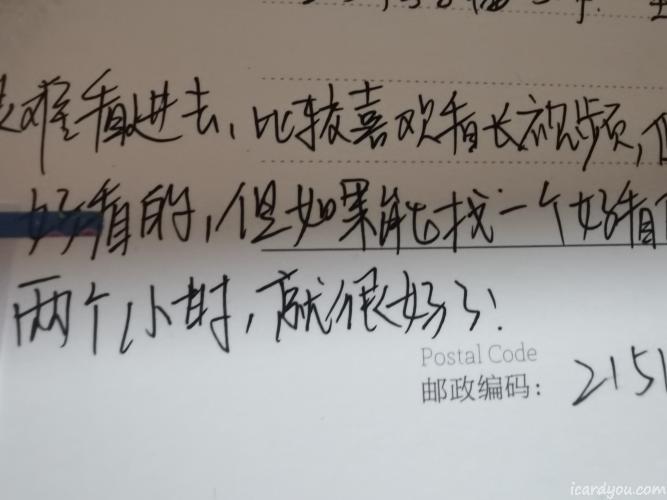 难看进去、比较喜欢看长视频,
好看的,但如果能找一个好看
两个小时,就很好了!
Postal Code
邮政编码: 2151
icardyou.com